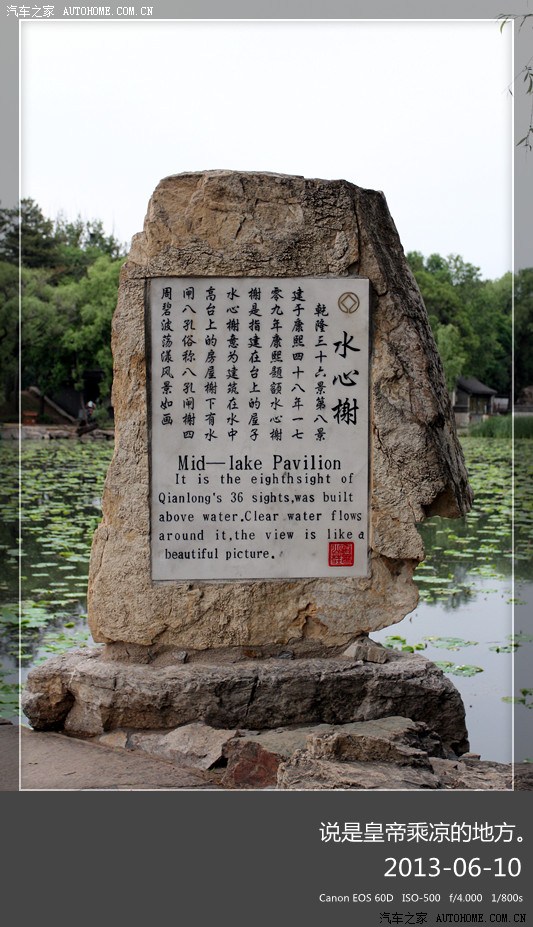 汽车之家 AUTOHOME.COM.CN
水心榭
乾隆三十六景第八景
建于康熙四十八年一七
零九年康熙题额水心榭
榭是指建在台上的屋子
水心榭意为建筑在水中
高台上的房屋榭下有水
闸八孔俗称八孔闸榭四
周碧波荡漾风景如画
Mid—lake Pavilion
It is the eighthsight of
Qianlong's 36 sights,was built
above water.Clear water flows
around it,the view is like a
beautiful picture.
说是皇帝乘凉的地方。
2013-06-10
Canon EOS 60D ISO-500 f/4.000 1/800s
汽车之家 AUTOHOME.COM.CN